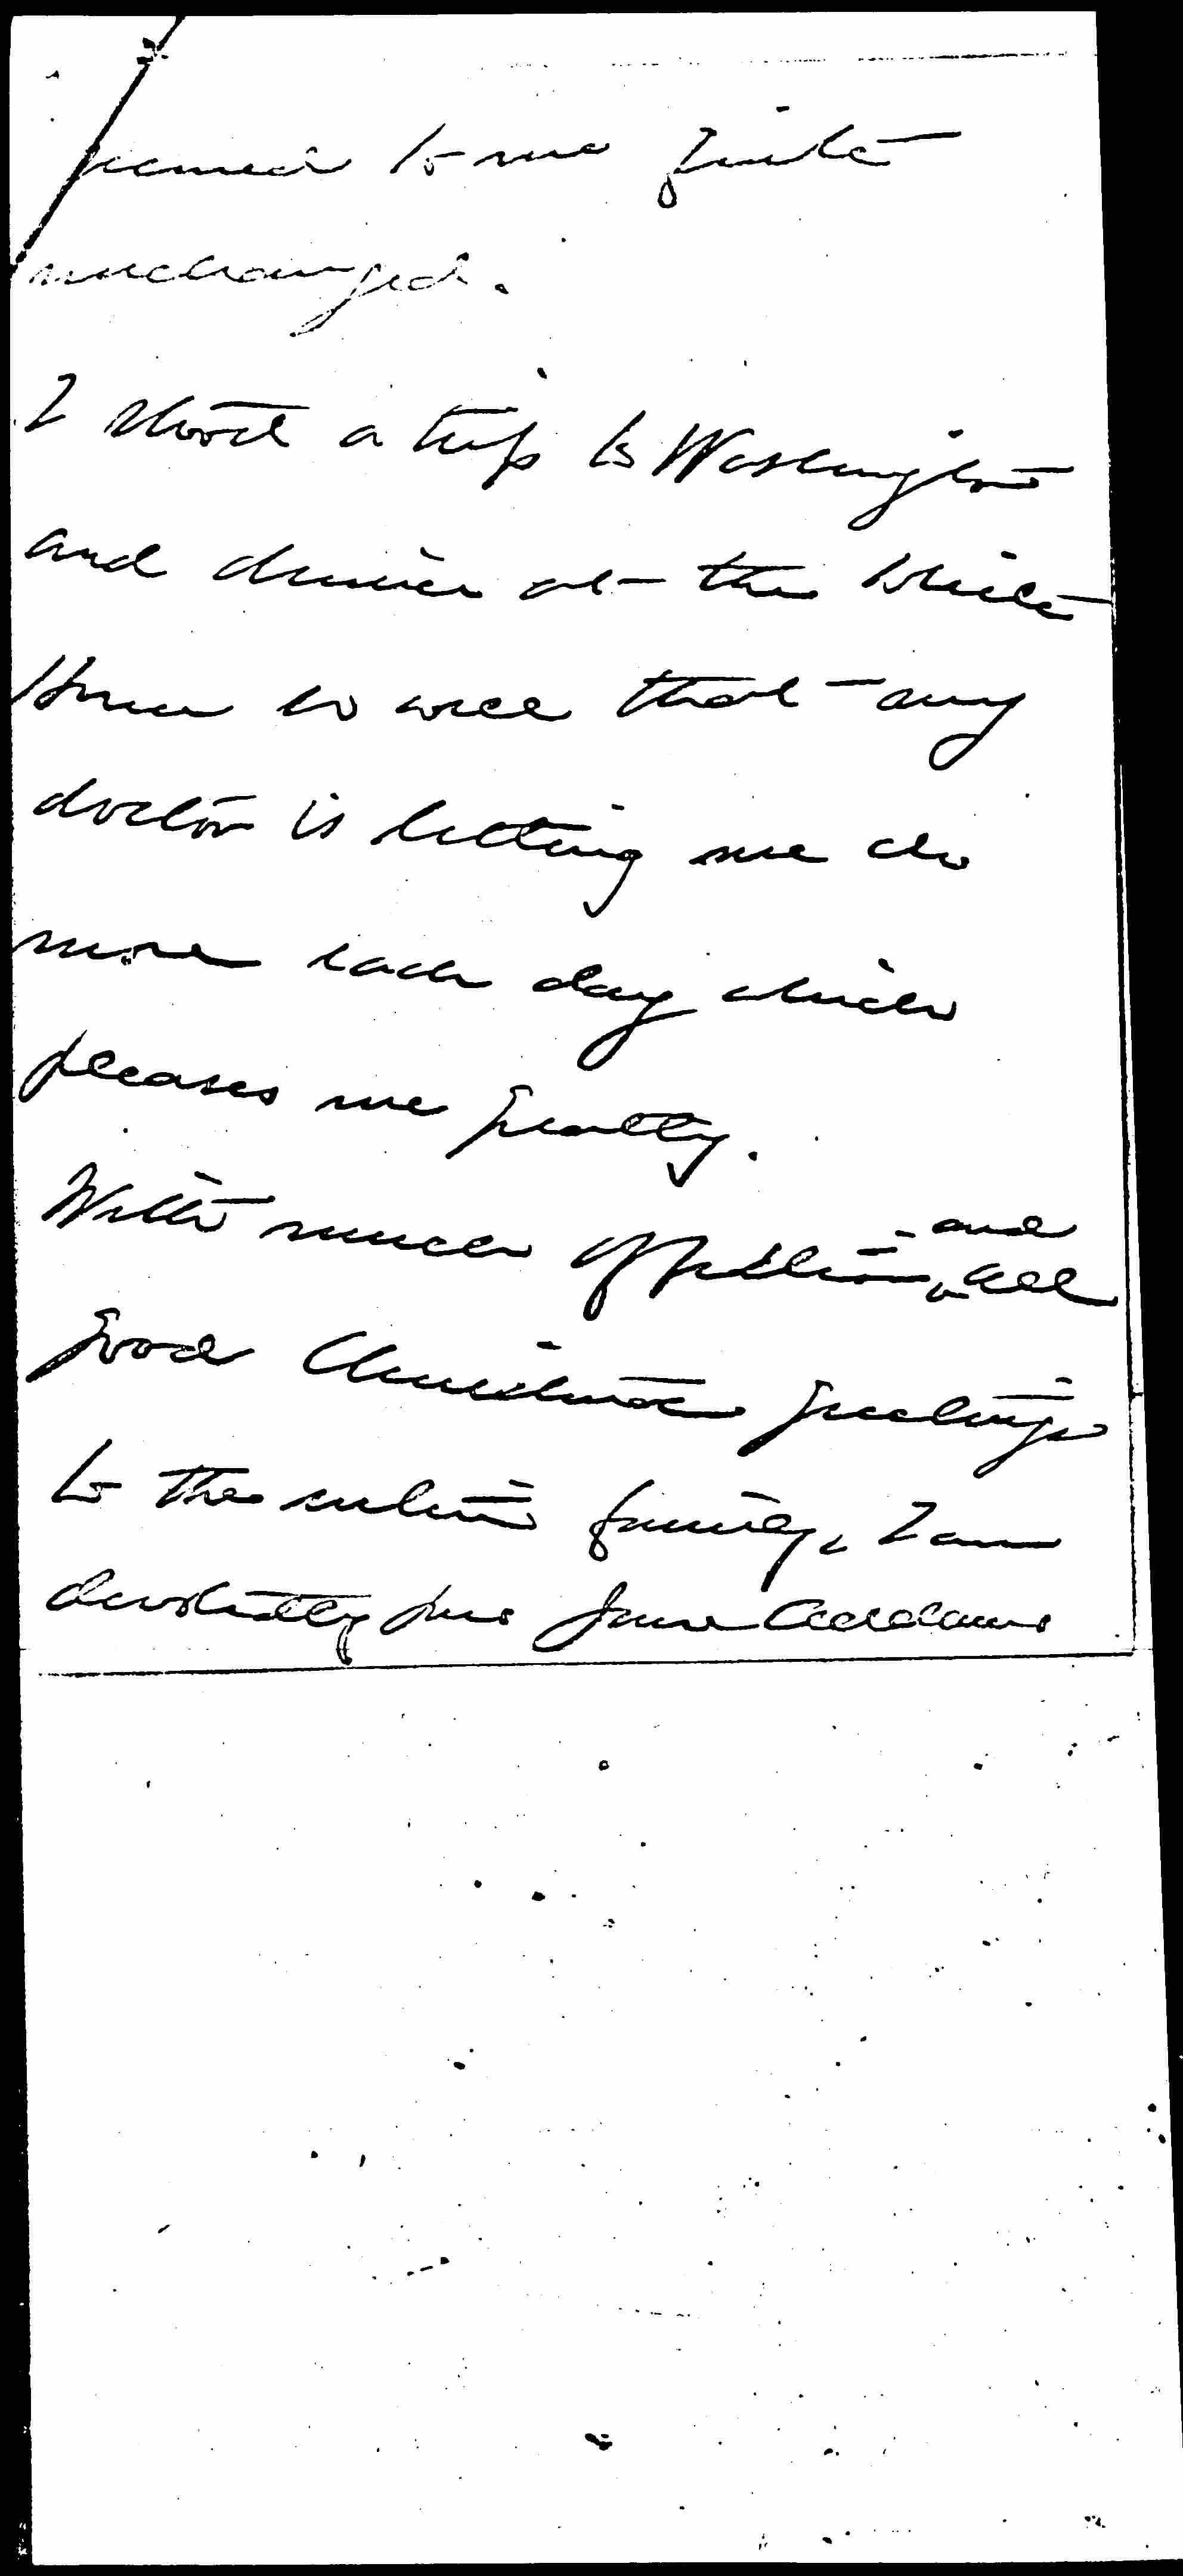 seemed to me quite
unchanged.
I stood a trip to Washington
and dinner at the White
House so well that my
doctor is letting me do
more each day which
pleases me greatly.
With much affection, and all
good Christmas greetings
to the entire family, I am
devotedly yrs Jane Addams